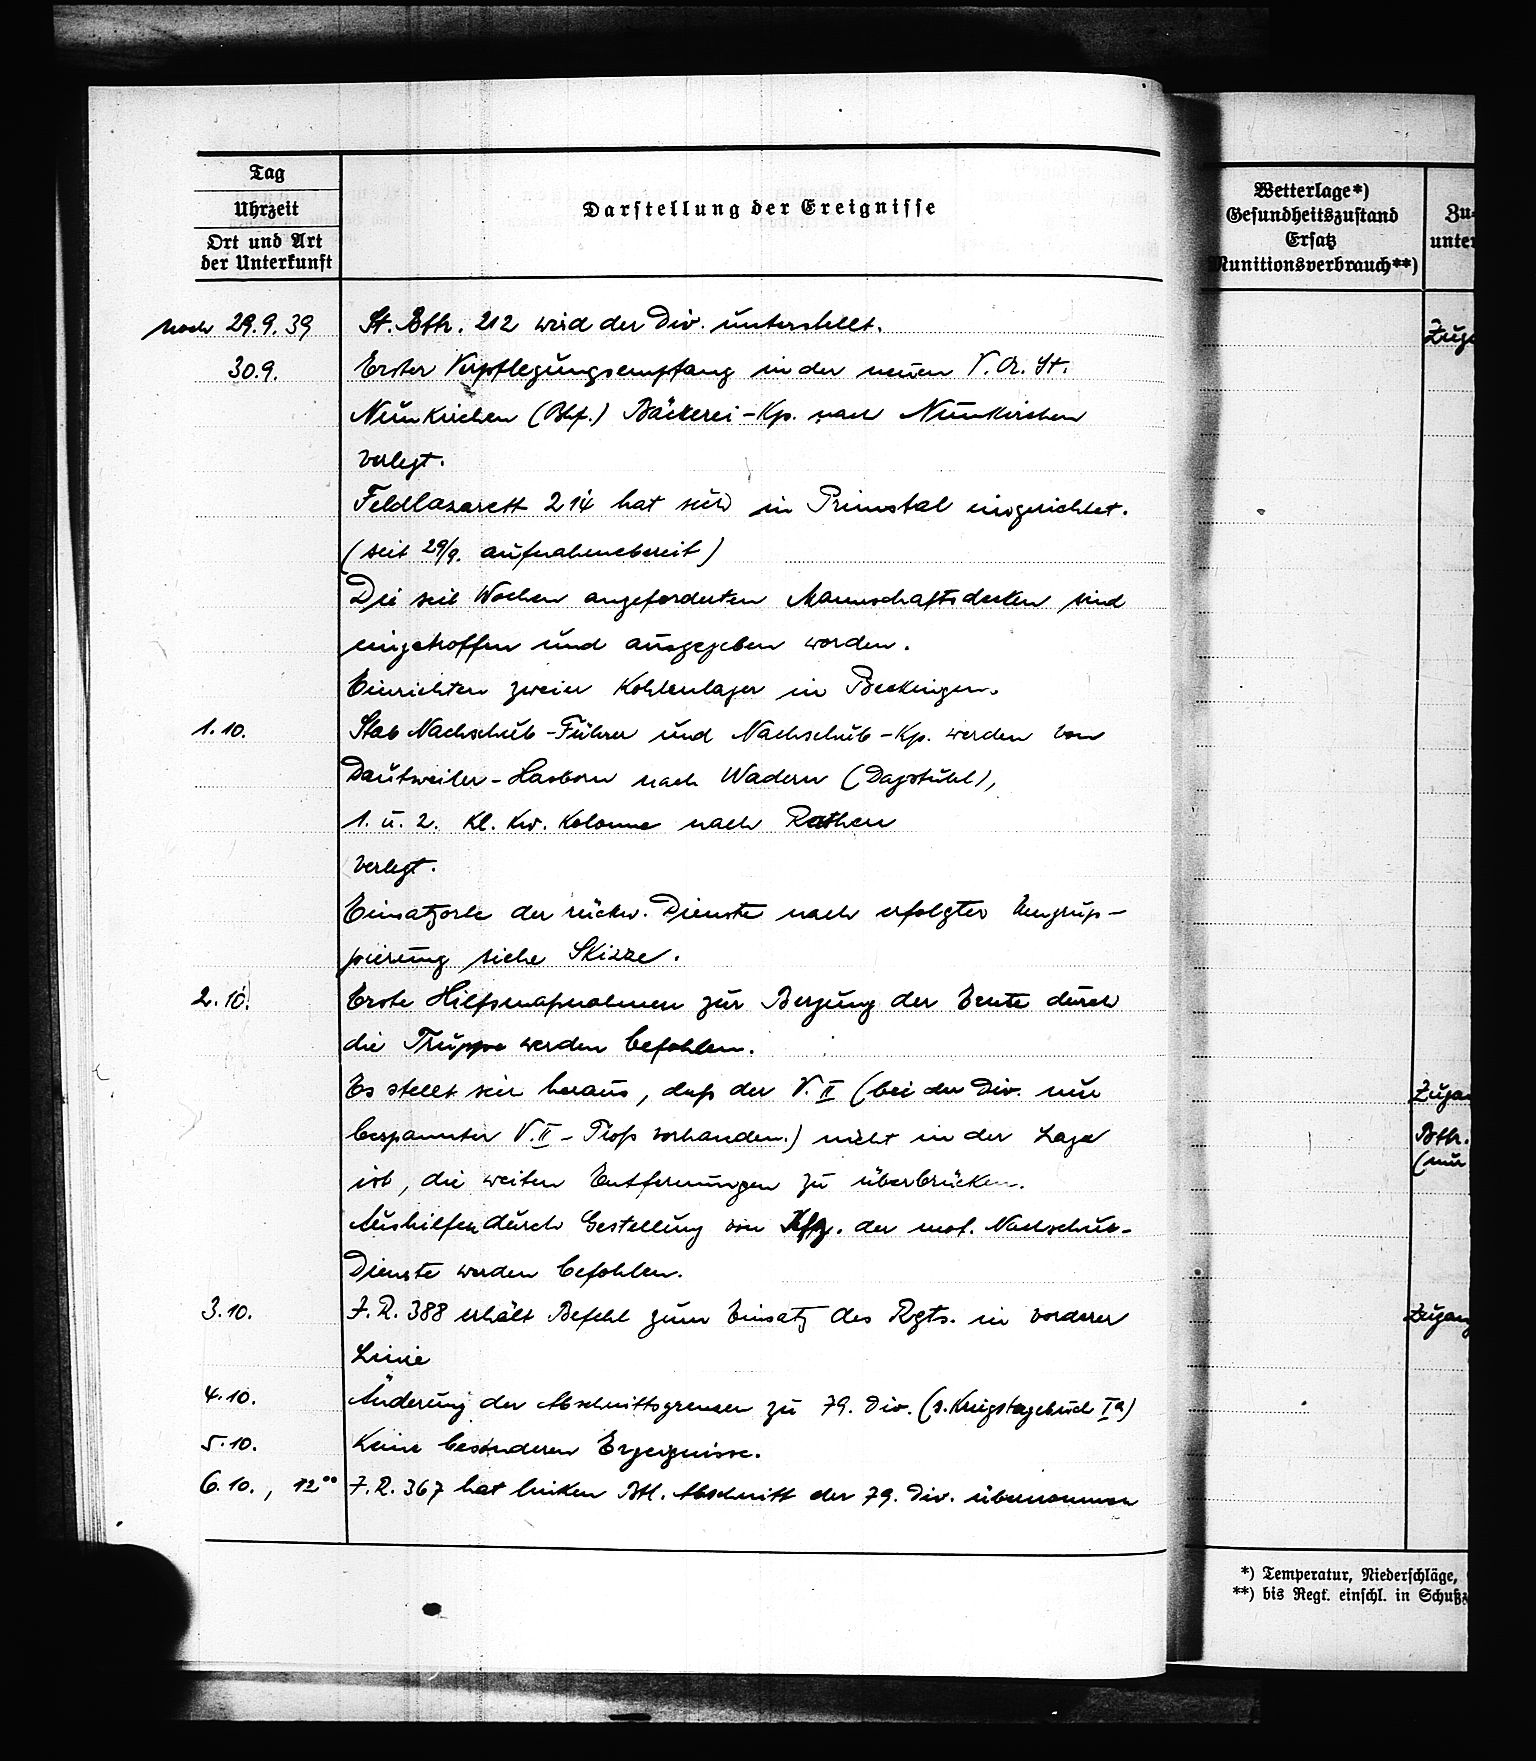 Tag
Uhrzeit
Ort und Art
der Unterkunft
Darstellung der Ereignisse
noch 29.9.39 St. Bttr. 212 wird der Div. unterstellt.
30.9. Erster Verpflegungsempfang in der neuen V.A.St.
Neunkirchen (Bhf.) Bäckerei-Kp. nach Neunkirchen
verlegt.
Feldlazarett 214 hat sich in Primstal eingerichtet.
(seit 29/9. aufnahmebereit)
Die seit Wochen angeforderten Mannschaftsdecken sind
eingetroffen und ausgegeben worden.
Einrichten zweier Kohlenlager in Beckingen.
1.10. Stab Nachschub-Führer und Nachschub-Kp. werden von
Dautweiler-Hasborn nach Wadern (Dagstuhl),
1. u. 2. Kl. Kw. Kolonne nach
verlegt.
Einsatzorte der rückw. Dienste nach erfolgter Umgrup-
pierung siehe Skizze.
2.10. Erste Hilfsmaßnahmen zur Bergung der Ernte durch
die Truppe werden befohlen.
Es stellt sich heraus, daß der V.II (bei der Div. nur
bespannter V.II-Troß vorhanden.) nicht in der Lage
ist, die weiten Entfernungen zu überbrücken.
Aushilfen durch Gestellung von Kfz. der mot. Nachschub-
Dienste werden befohlen.
3.10. J.R. 388 erhält Befehl zum Einsatz des Rgts. in vorderer
Linie
4.10. Änderung der Abschnittsgrenzen zu 79. Div. (s. Kriegstagebuch Ia)
5.10. Keine besonderen Ergeignisse.
6.10., 12°° J.R. 367 hat linken Btl. Abschnitt der 79. Div. übernommen
Wetterlage*)
Gesundheitszustand
Ersatz
Munitionsverbrauch**)
Zu-
unter
Zuga
Zugan
Bttr.
(nur
Zugang
*) Temperatur, Niederschläge,
**) bis Regt. einschl. in Schußz